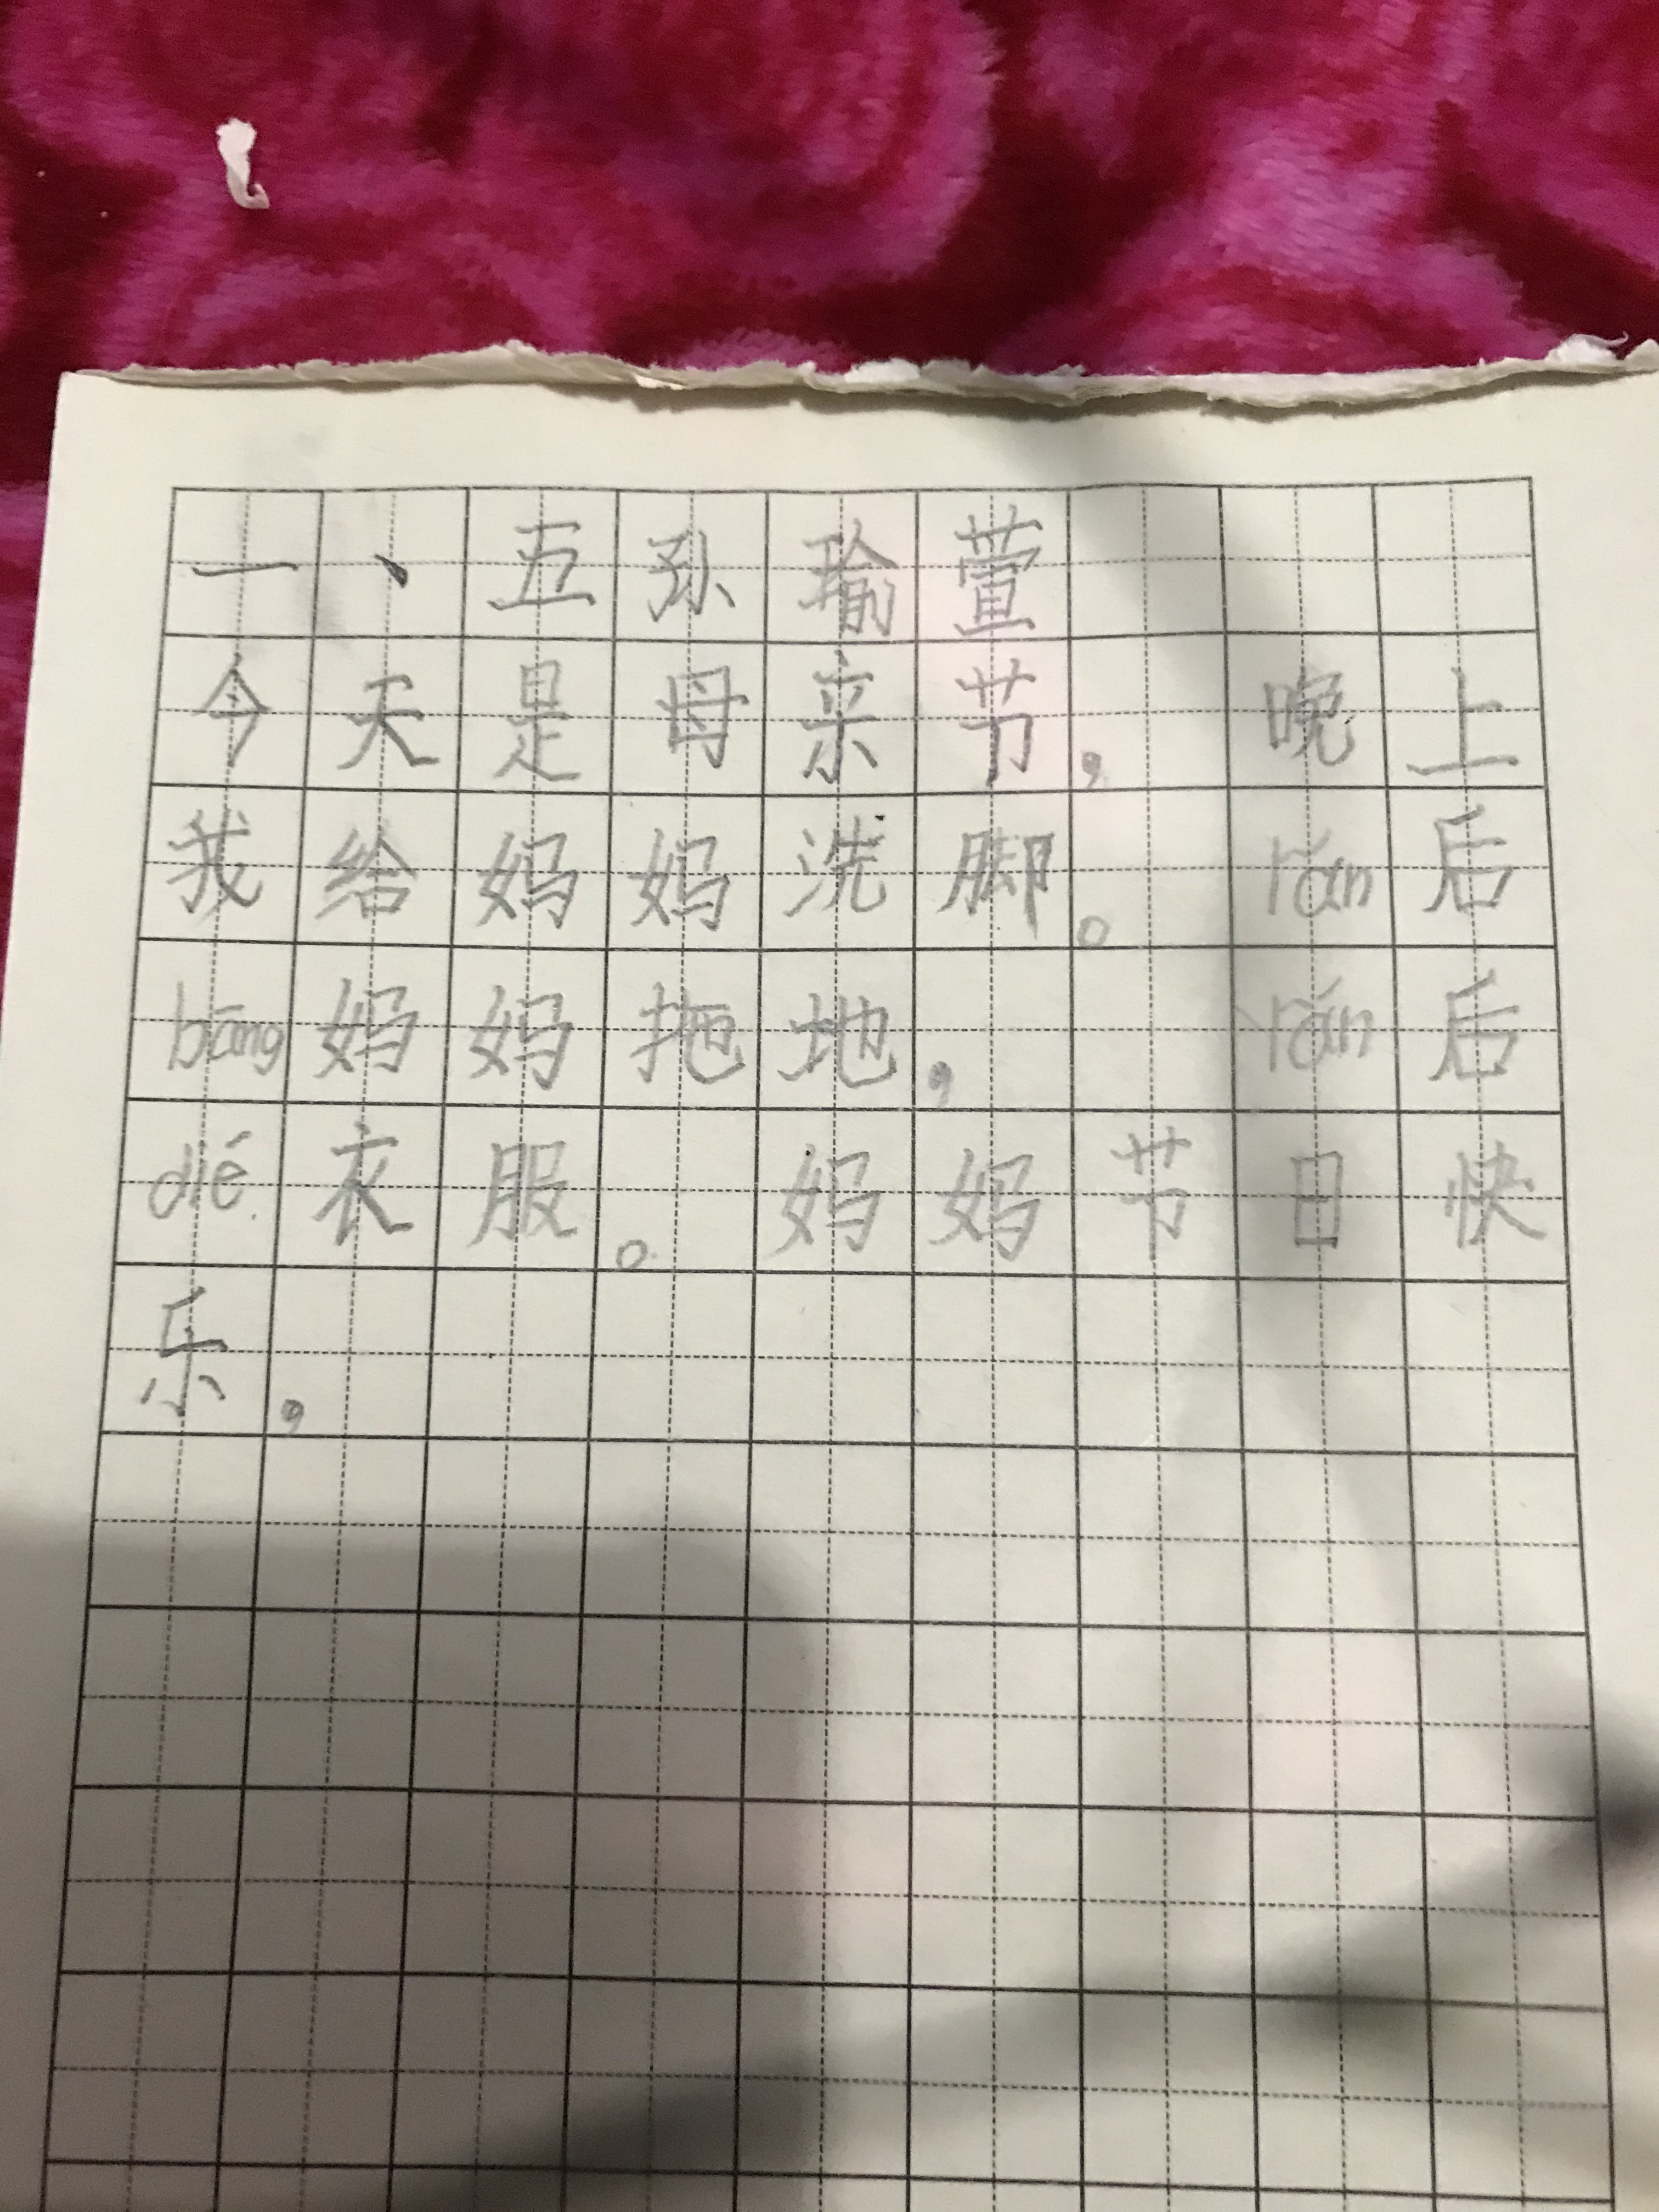 一、五孙瑜萱
今天是母亲节，晚上
我给妈妈洗脚。rǎn后
bāng妈妈拖地，rǎn后
dié衣服。妈妈节日快
乐，